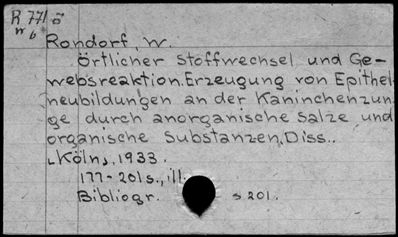 R 771 ö
w 6
Rondorf, W.
Örtlicher Stoffwechsel und Ge-
websreaktion. Erzeugung von Epithel-
neubildungen an der Kaninchenzun-
ge durch anorganische Salze und
organische Substanzen. Diss..
Köln, 1933.
177-201 s., ill.
Bibliogr. s 201.